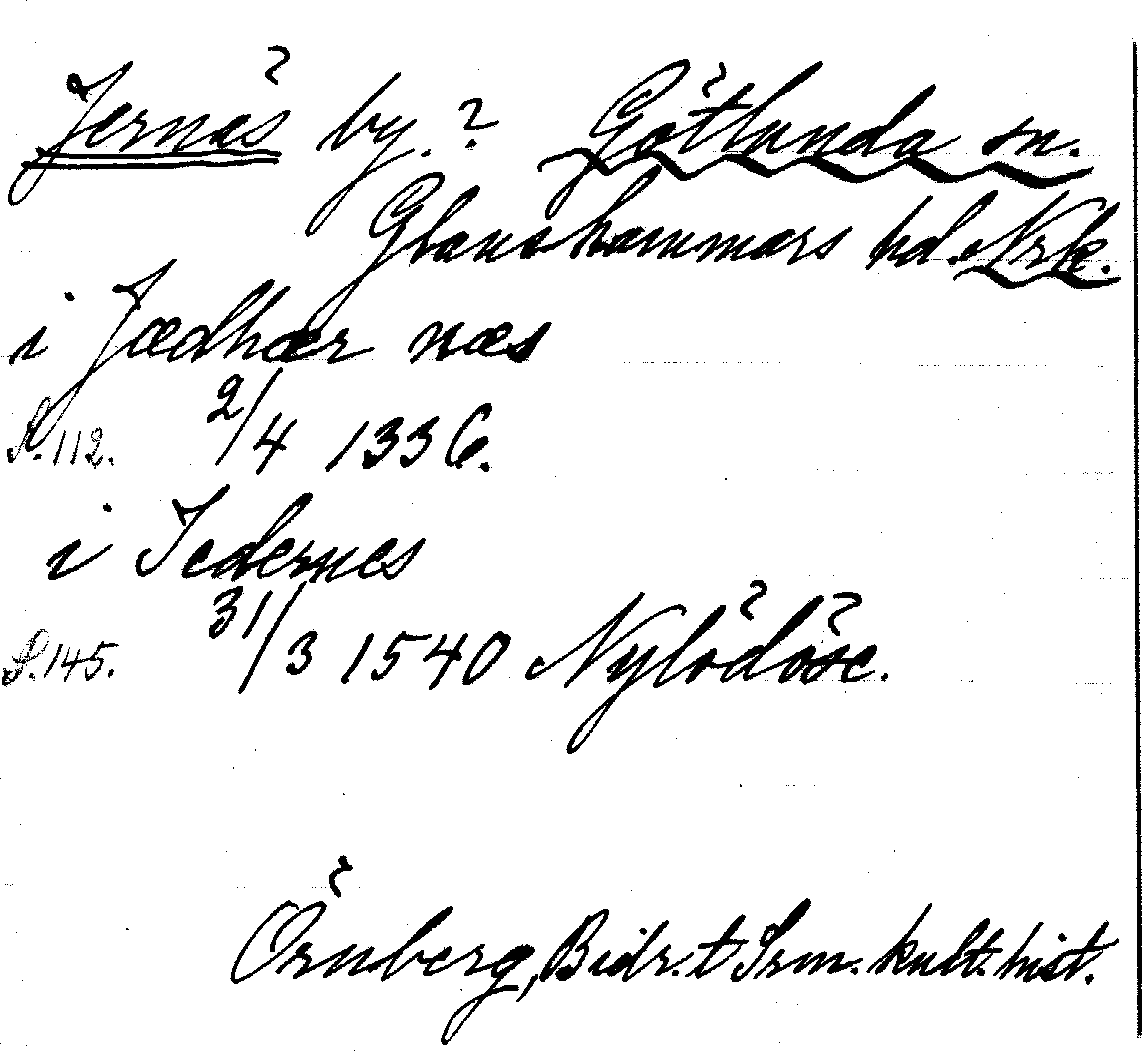 Jernäs by.? Götlunda sn.
Glanshammars hd. Nrk.
i Jædhær næs
S. 112. 2/4 1336.
i Jedernes
S. 145. 31/3 1540 Nylödöse.
Örnberg, Bidr. t Srm. kult. hist.